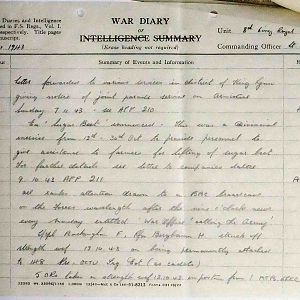 Diaries and Intelligence
d in F.S. Regs., Vol. I.
espectively. Title pages
uscript.
WAR DIARY
OR
INTELLIGENCE SUMMARY
(Erase heading not required)
Unit
Royal
Commanding Officer
1943
Summary of Events and Information
Letter forwarded to various services in district of King Lynn
giving notice of joint parade service on Armistice
Sunday 7.11.43 - see APP 210
Ex "Sugar Beet" commenced - this was a
exercise from 13th - 30th Oct to provide personnel to
give assistance to farmers for lifting of sugar beet
For further details see letter to companies dated
9.10.43 APP 211
all ranks attention drawn to a BBC broadcast
on the Forces wavelength after the nine o'clock news
every Sunday entitled "War Office calling the Army"
F. Pte Bingham H. struck off
strength wef 13.10.43 on being permanently attached
to 148 Pre-OCTU Trg Est (as cadets)
5 ORs taken on strength wef 12.10.43 on posting from